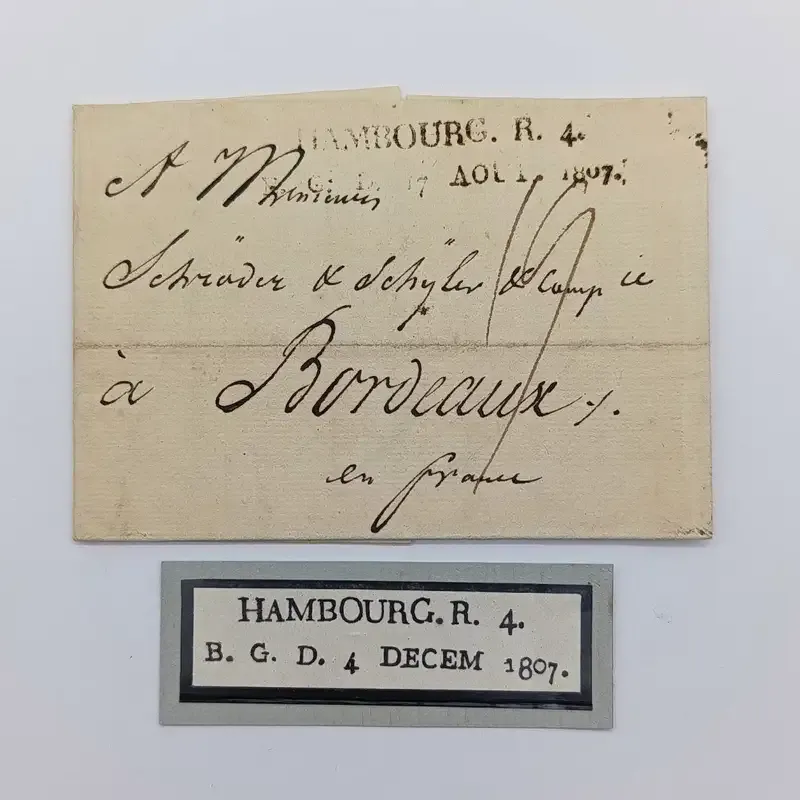 HAMBOURG. R. 4.
G. D. 17 AOUT. 1807.
A Messieurs
Schröder & Schÿler & Comp ie
à Bordeaux /.
en france
HAMBOURG. R. 4.
B. G. D. 4 DECEM 1807.